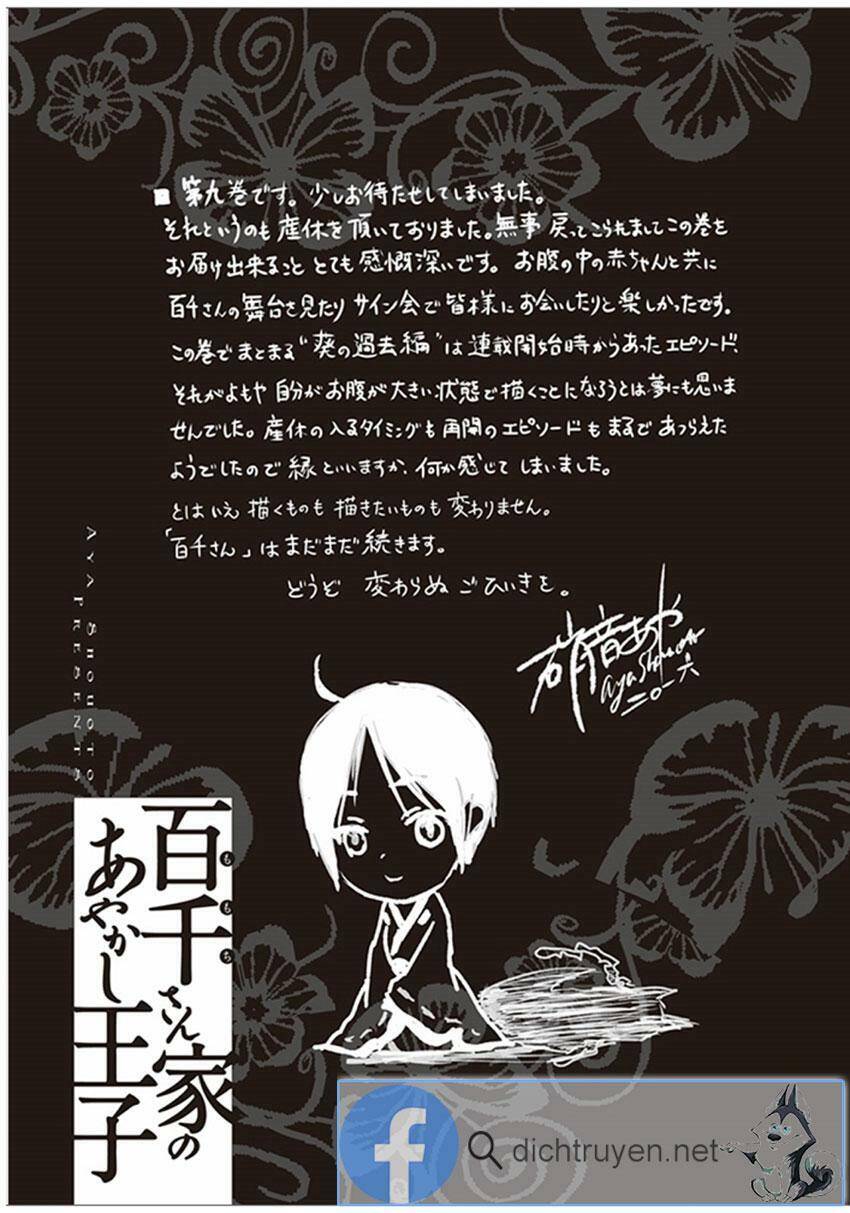 ■第九巻です。少しお待たせしてしまいました。
それというのも産休を頂いておりました。無事戻ってこられましてこの巻を
お届け出来ること とても感慨深いです。お腹の中の赤ちゃんと共に
百千さんの舞台を見たりサイン会で皆様にお会いしたりと楽しかったです。
この巻でまとまる“葵の過去編”は連載開始時からあったエピソード、
それがよもや自分がお腹が大きい状態で描くことになろうとは夢にも思いま
せんでした。産休の入るタイミングも再開のエピソードもまるであつらえた
ようでしたので縁といいますか、何か感じてしまいました。
とはいえ描くものも描きたいものも変わりません。
「百千さん」はまだまだ続きます。
どうぞ 変わらぬごひいきを。
硝音あや
Aya Shouoto
二〇一六
AYA SHOUOTO
PRESENTS
百千さん家の
ももち
あやかし王子
dichtruyen.net